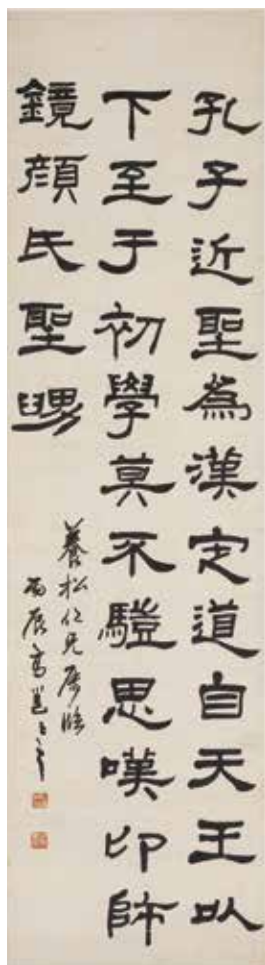 孔子近聖為漢定道自天王以
下至于初學莫不驥思嘆卬師
鏡顏氏聖舅
養松仁兄屬臨
丙辰高邕之